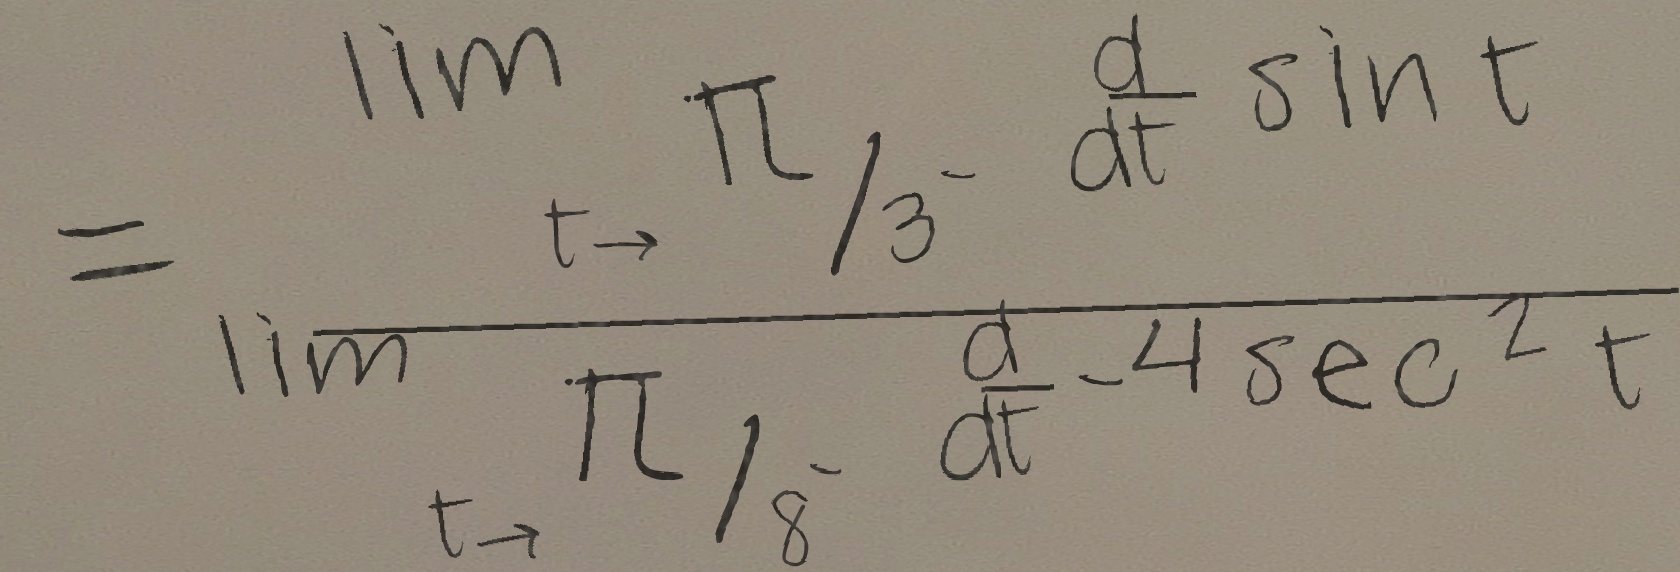 = \frac{\lim_{t \to \pi/3^-} \frac{d}{dt} \sin t}{\lim_{t \to \pi/8^-} \frac{d}{dt} -4 \sec^2 t}